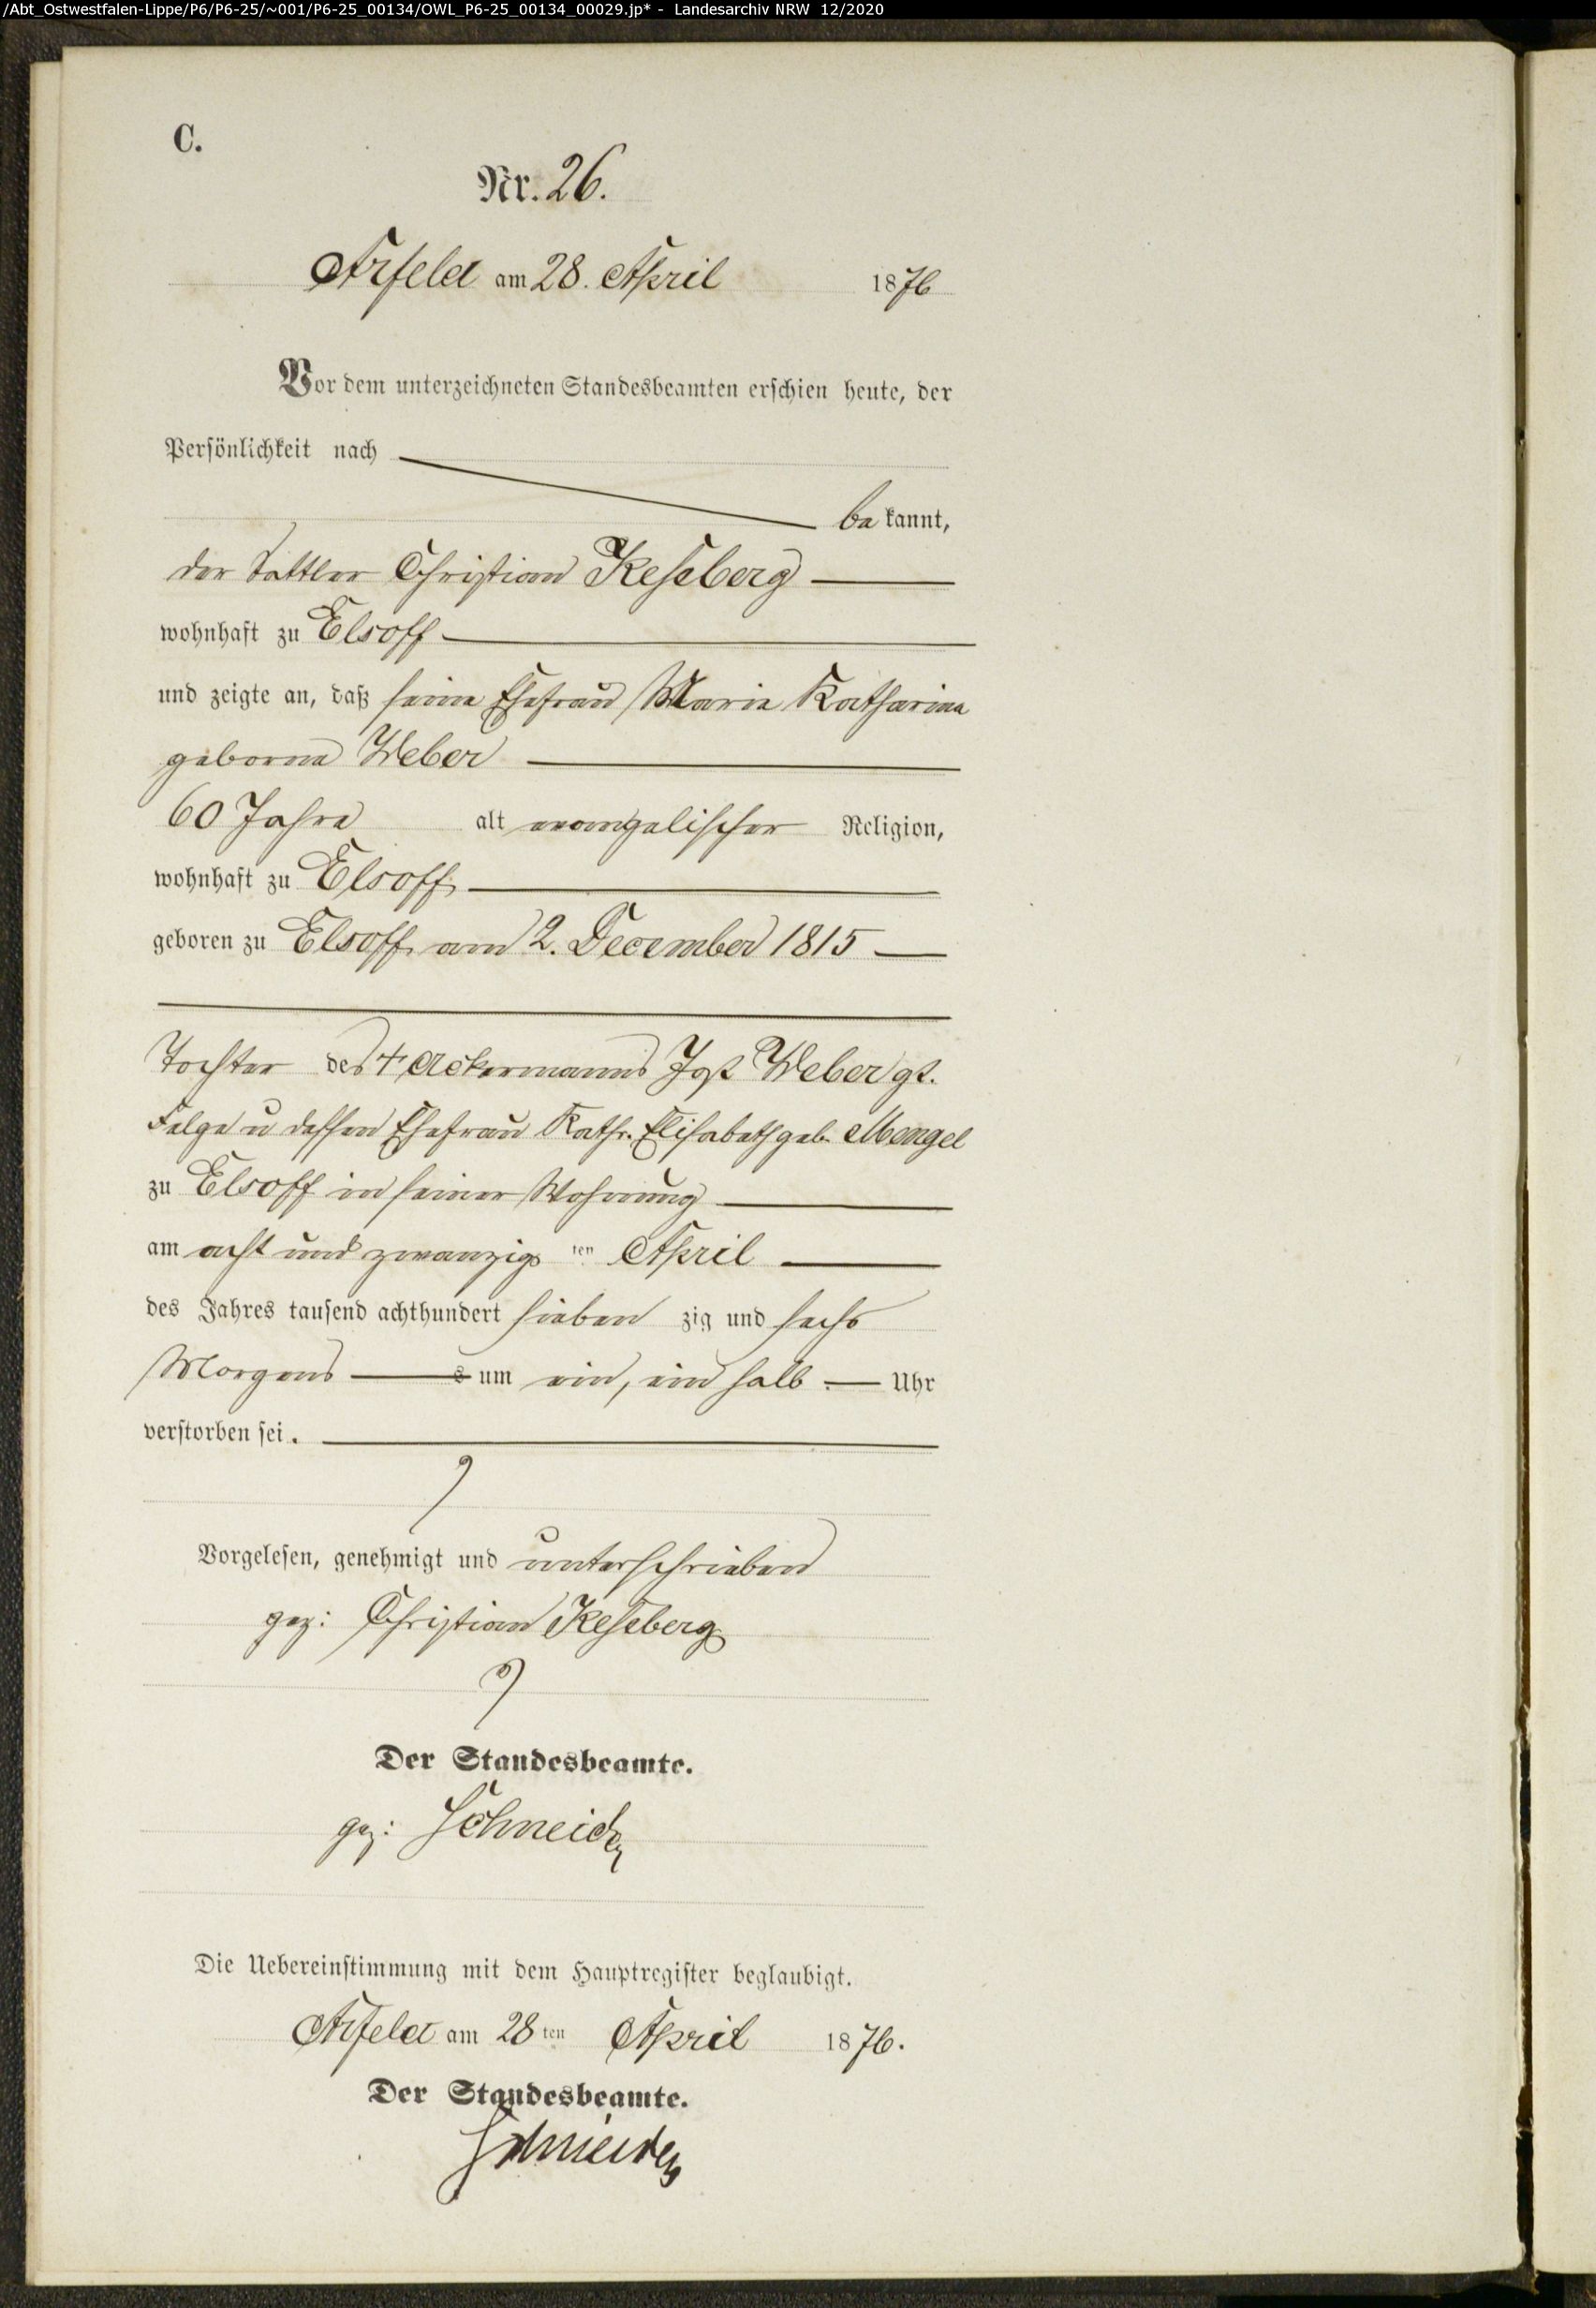 /Abt_Ostwestfalen-Lippe/P6/P6-25/~001/P6-25_00134/OWL_P6-25_00134_00029.jp* - Landesarchiv NRW 12/2020
C.
Nr. 26.
Arfeld am 28. April 1876
Vor dem unterzeichneten Standesbeamten erschien heute, der
Persönlichkeit nach
bekannt,
der Sattler Christian Kesseberg
wohnhaft zu Elsoff
und zeigte an, daß seine Ehefrau Marie Katharina
geborne Weber
60 Jahre alt evangelischer Religion,
wohnhaft zu Elsoff
geboren zu Elsoff am 2. December 1815
Tochter des + Ackermanns Jost Weber gt.
u dessen Ehefrau Kath. Elisabeth geb. Mengel
zu Elsoff in seiner Wohnung
am acht und zwanzigsten April
des Jahres tausend achthundert siebenzig und sechs
Morgens um ein, ein halb Uhr
verstorben sei.
Vorgelesen, genehmigt und unterschrieben
gez: Christian Kesseberg
Der Standesbeamte.
gez: Schneider
Die Uebereinstimmung mit dem Hauptregister beglaubigt.
Arfeld am 28ten April 1876.
Der Standesbeamte.
Schneider